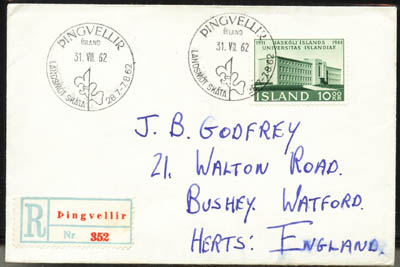 ÞINGVELLIR
ÍSLAND
31. VII. 62
LANDSMÓT SKÁTA
28.7-7.8 62
ÞINGVELLIR
ÍSLAND
31. VII. 62
LANDSMÓT SKÁTA
28.7-7.8 62
1911 HÁSKÓLI ÍSLANDS 1961
UNIVERSITAS ISLANDIAE
ÍSLAND 10.00
J. B. GODFREY
21, WALTON ROAD.
BUSHEY. WATFORD.
HERTS: ENGLAND.
R Þingvellir
Nr 352